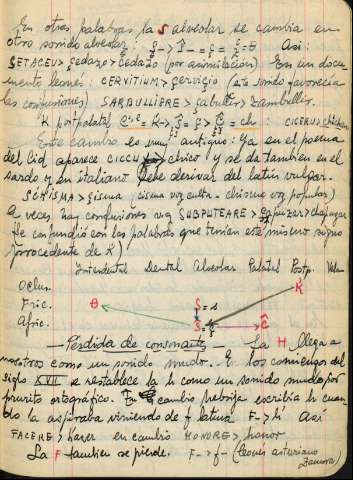 En otras palabras la S alveolar se cambia en
otro sonido alveolar: Así:
SETACEU > çedazo > cedazo (por asimilación) En un docu-
mento leonés CERVITIUM > (este sonido favorecía
las confusiones) SABBULLIERE >
K postpalatal = ch : CICERUS > chicharo
Este cambio es muy antiguo: Ya en el poema
del Cid aparece CICCU > chico y se da también en el
sardo y en italiano debe derivar del latín vulgar.
SCHISMA > (cisma voz culta - chisme voz popular)
a veces hay confusiones vg SUBPUTEARE > > chapuzar
Se confundió con las palabras que tenían este mismo signo
(procedente de K)
Interdental Dental Alveolar Palatal Postp. Velar
Oclus. K
Fric. θ S = s
Afric. Ŝ ĉ
- Perdida de consonante - La H, llega a
nosotros como un sonido mudo. En los comienzos del
siglo XVII se restablece la h como un sonido mudo por
prurito ortográfico. En cambio Nebrija escribía h cuan-
do la aspiraba viniendo de f latina F- > h' Así
FACERE > haxer en cambio HONORE > honor
La F también se pierde. F- > f- (leonés asturiano
Zamora)